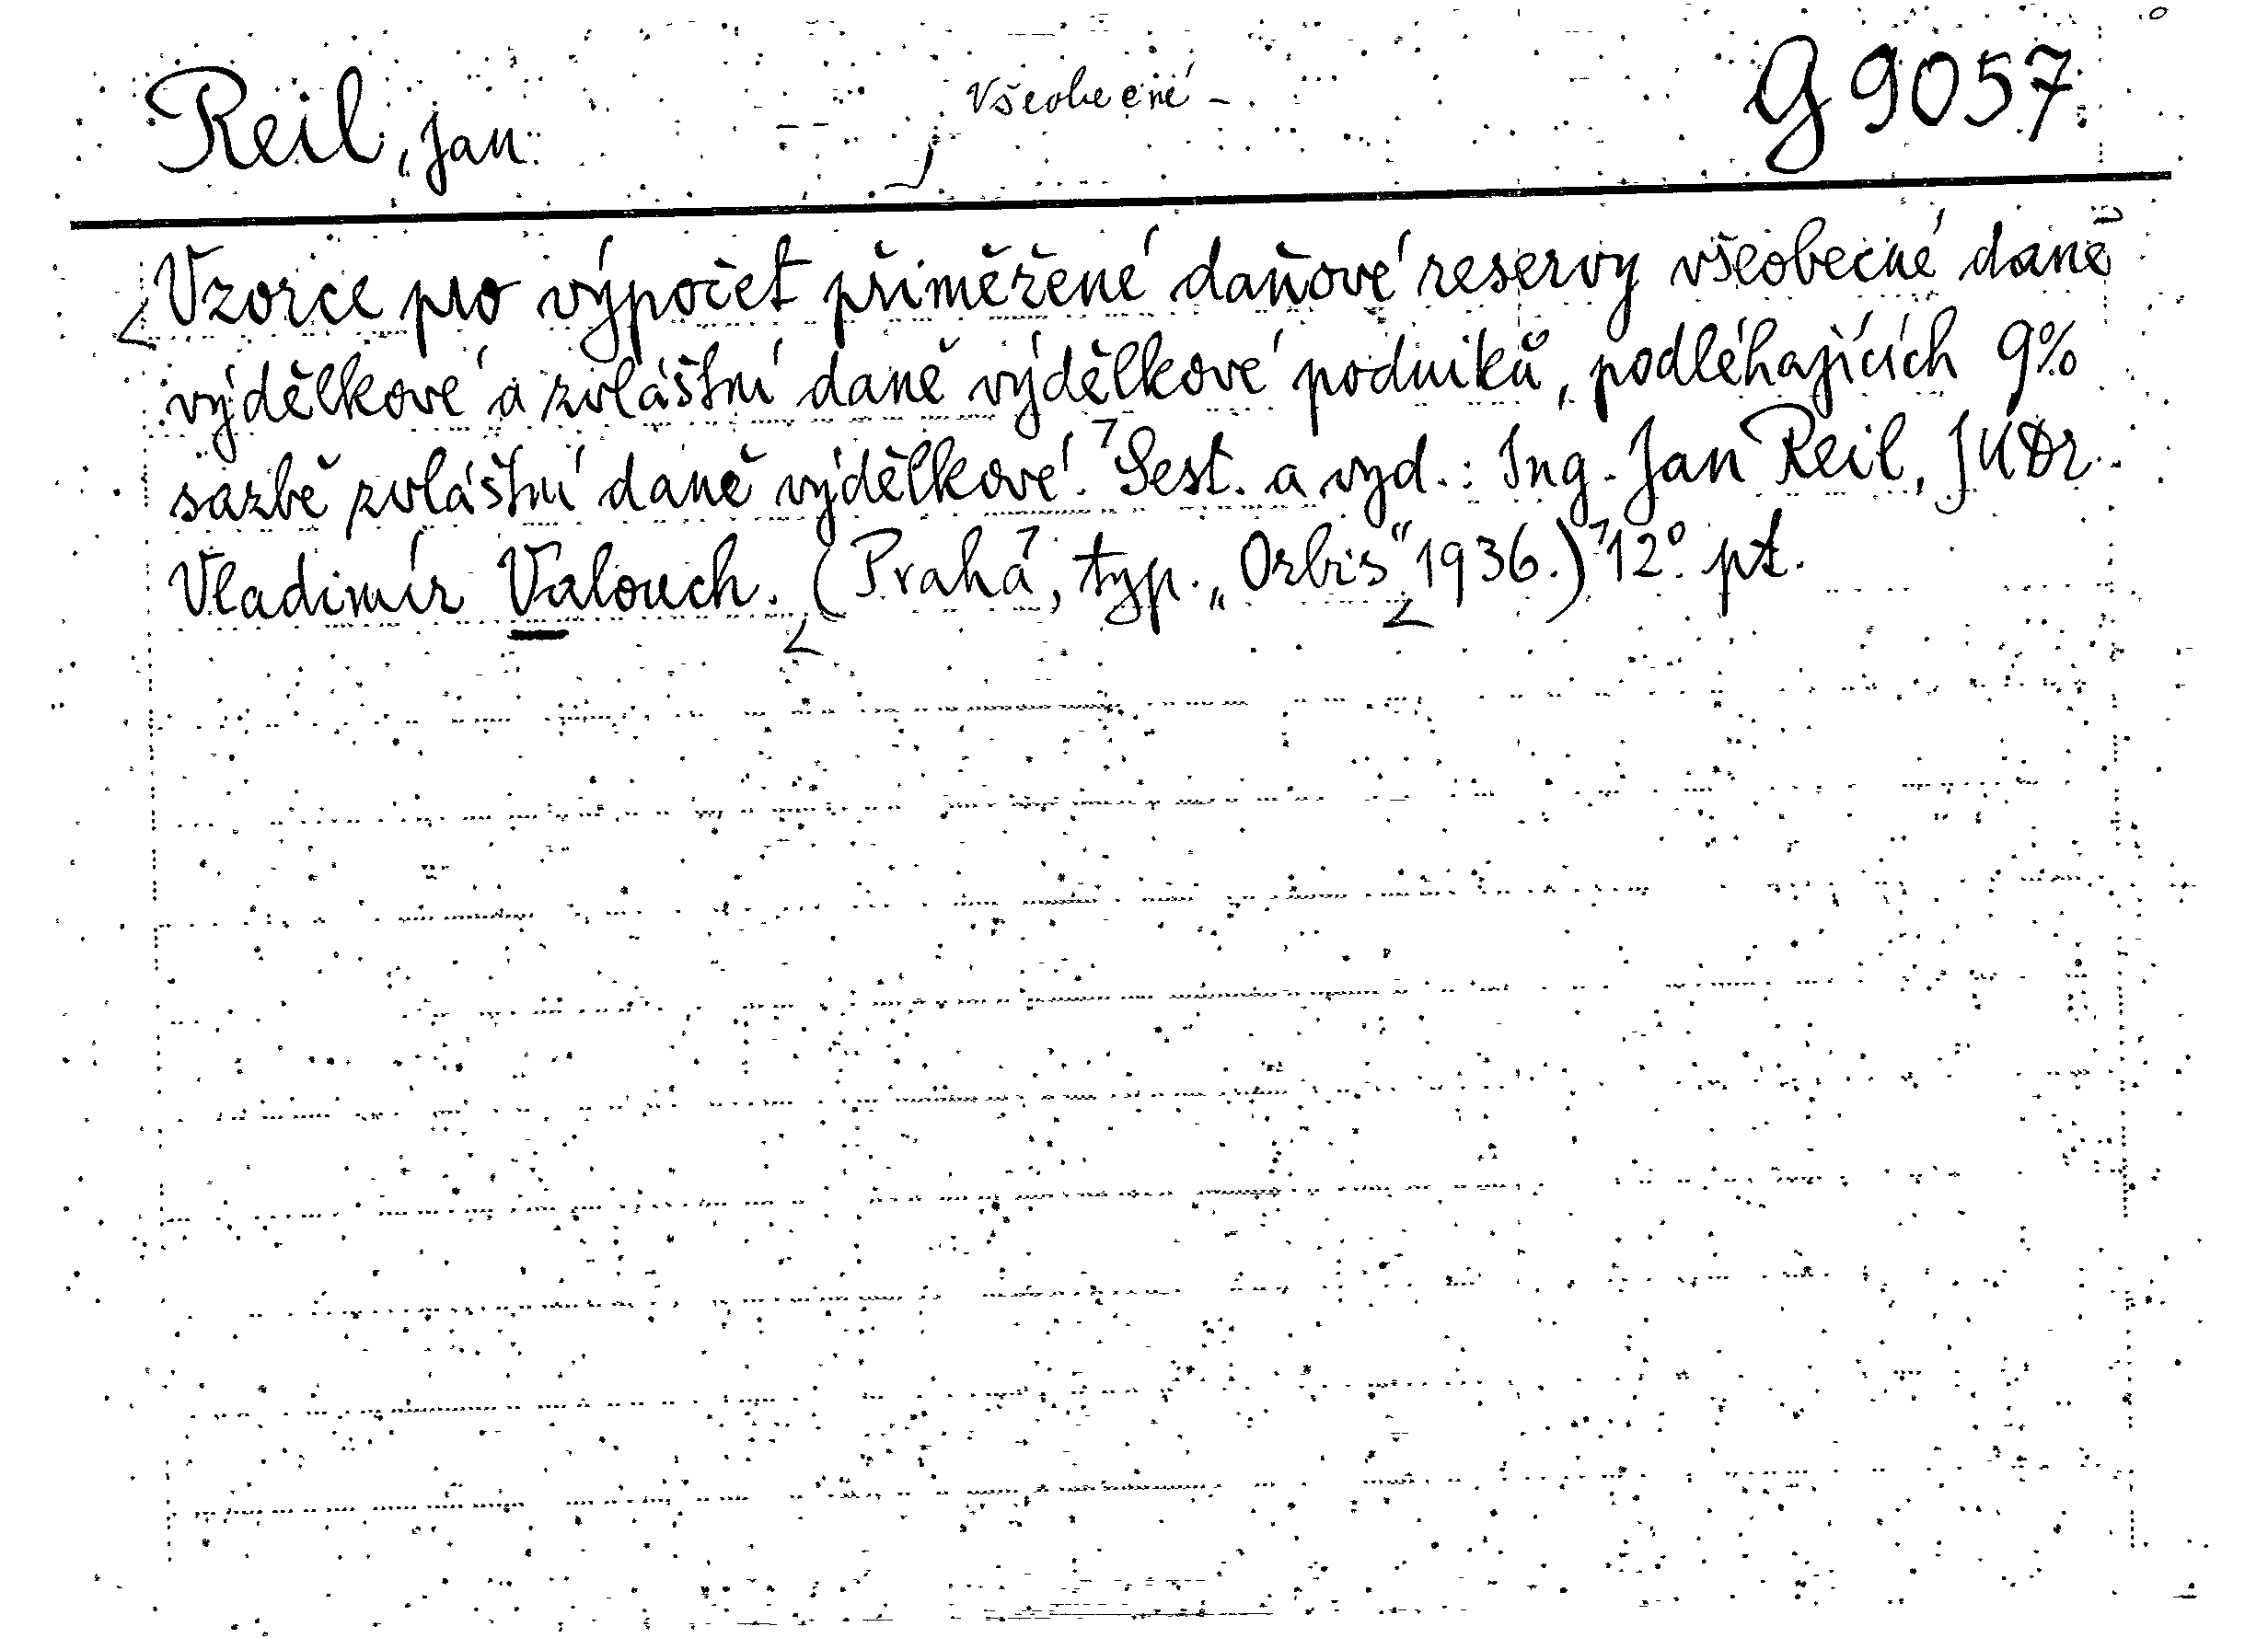 Reil, Jan
Všeobecné -
G 9057
Vzorce pro výpočet přiměřené daňové reservy všeobecné daně
výdělkové a zvláštní daně výdělkové podniků, podléhajících 9%
sazbě zvláštní daně výdělkové. Sest. a vyd.: Ing. Jan Reil, JUDr.
Vladimír Valouch. (Praha, typ. „Orbis" 1936.) 12° pt.